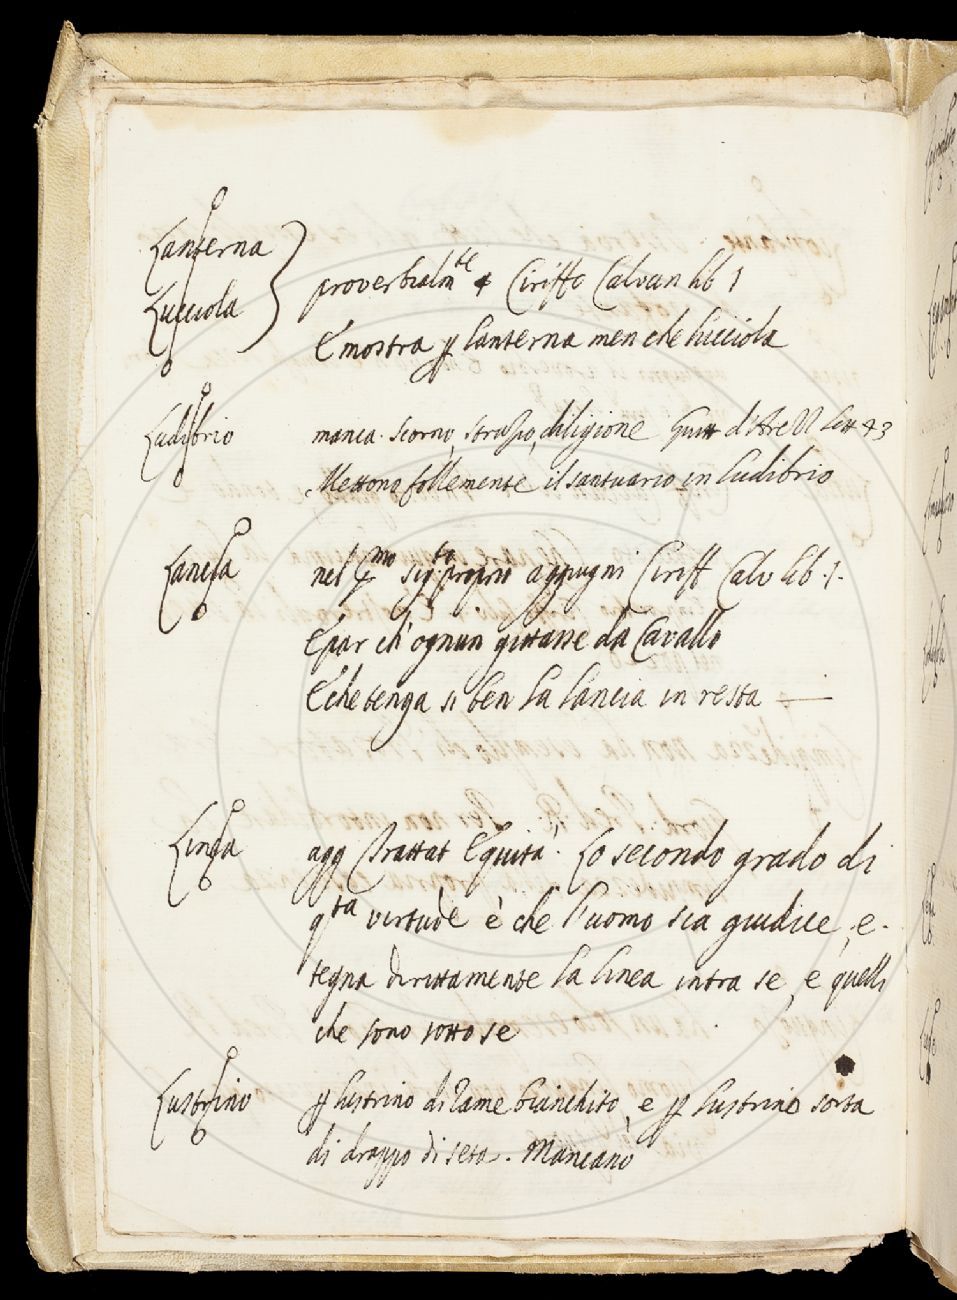 Lanterna
Lucciola
proverbialm.te + Ciriffo Calvan lib 1
E mostra p lanterna men che lucciola
Ludibrio
manca. scorno, strazio, diligione Guitt d'Are lett 43
Mettono follemente il santuario in ludibrio
Lancia
nel p.mo sig.to proprio aggiugni Ciriff Calv lib. 1.
E par ch'ognun gittasse da Cavallo
E che tenga si ben la lancia in resta
Linea
agg Trattat Equità. Lo secondo grado di
q.ta virtude è che l'uomo sia giudice, e
tegna dirittamente la linea intra se, e quelli
che sono sotto se
Lustrino
p lustrino di rame bianchito, e p lustrino sorta
di drappo di seta. Mancano